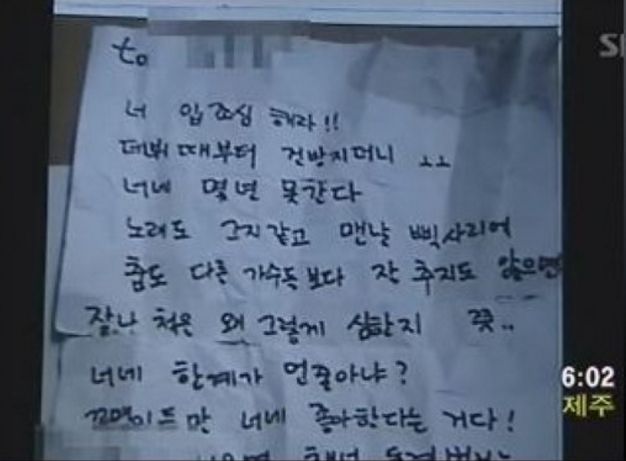 to
너 입조심 해라!!
데뷔때부터 건방지더니 ㅗㅗ
너네 몇년 못간다
노래도 그지같고 맨날 삑사리에
춤도 다른 가수들보다 잘 추지도 않으면
잘난 척은 왜 그렇게 심한지
너네 한계가 언줄아냐?
꼬맹이들만 너네 좋아한다는 거다!
6:02
제주